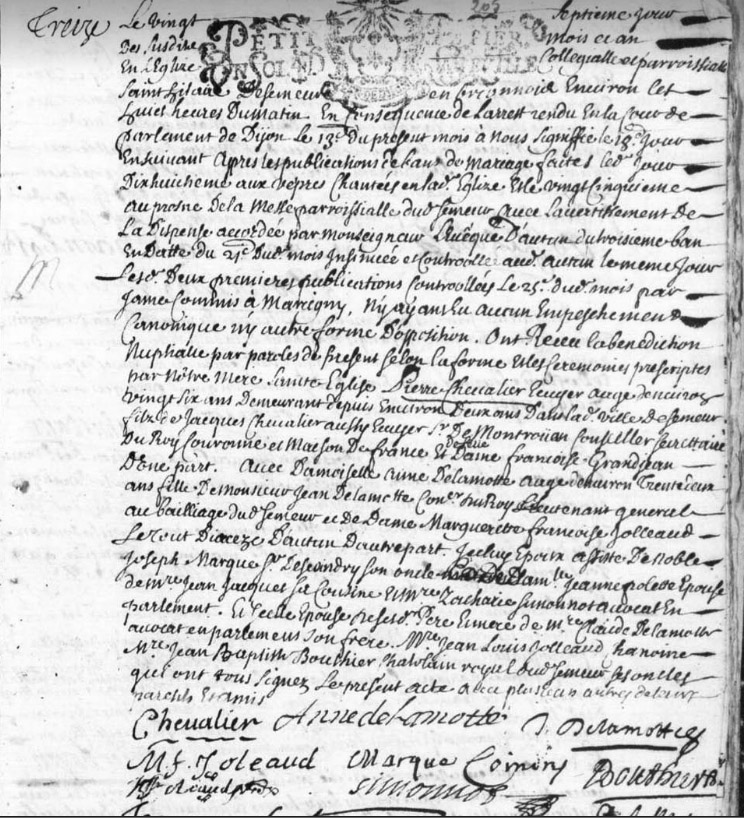 203
Treize Le Vingt Septieme jour
Des susdits mois et an
En L'Eglize Collegialle et parroissialle
PETIT PAPIER
UN SOL LA FEUILLE
Saint hilaire de semeur en brionnois Environ les
huict heures du matin En Consequence de Larrest rendu En la Cour de
parlement de Dijon Le 13e du present mois a Nous signiffié le 18e jour
Ensuivant Apres les publications de bans de mareage faites led. jour
Dixhuitieme aux vepres Chantées en lad. Eglize Et le vingt Cinquieme
au prosne De la Messe parroissialle dud semeur avec Lavertissement de
La Dispense accordée par monseigneur L'Eveque D'autun du troisieme ban
En Datte du 21e Dud. mois Insinuée et Controllée aud. autun le meme jour
Lesd. Deux premieres publications Controllées Le 25e dud. mois par
Jame Commis a Marcigny. N'y ayans Eu aucun Empeschement
Canonique n'y autre forme D'oposition. Ont Receu la benediction
Nuptialle par paroles de present selon la forme Et les Ceremonies prescriptes
par Nôtre Mere sainte Eglise Pierre Chevalier Ecuyer age d'environ
vingt six ans Demeurant depuis Environ Deux ans Dans lad. ville de semeur
filz de Jacques Chevalier aussy Ecuyer Sr De Montrouan Conseiller secrettaire
Du Roy Couronne et Maison De france Et Dame francoise Grandjean
D'une part. Avec Damoiselle anne Delamotte agée d'environ Trente deux
ans fille De monsieur Jean Delamotte Coner du Roy Lieutenant general
au bailliage dud semeur et de Dame Marguerite francoise Jolleaud
Le tout Diaceze D'autun D'autre part. Iceluy Epoux assisté De Noble
Joseph Marque Sr Son oncle Jeanne Epouse
de mre Jean Jacquet sa Cousine Et Mre Zacharie simonnot avocat En
parlement. Et icelle Epouse desd. Pere Et mere de mre Claude Delamotte
avocat en parlement son frere. Mre Jean Louis Jolleaud chanoine
Mre Jean Baptiste Bouthier Chatelain royal dud semeur ses oncles
qui ont tous signez Le present acte avec plusieurs autres de leurs
parents Et amis
Chevalier Anne de Lamotte J. Delamotte
M. f. Joleaud Marque Bouthier
simonnot